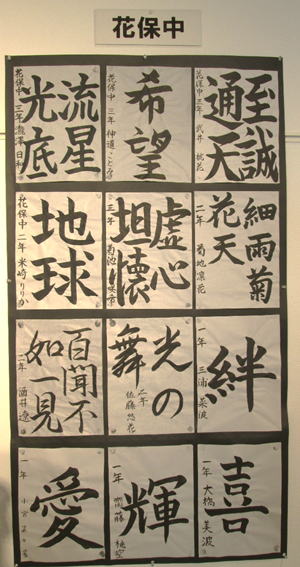 花保中
至誠
通天
花保中 三年 武井 桃花
希望
花保中 三年
流星
光底
花保中 三年 瀧澤 日和
細雨菊
花天
二年 菊地 凛花
虚心
坦懐
二年 菊池
地球
花保中 二年 米崎 りりか
絆
一年 三浦 菜波
光の
舞
二年 佐藤 悠花
百聞不
如一見
二年 酒井 遼
喜
一年 大橋 美波
輝
一年 齋藤
愛
一年